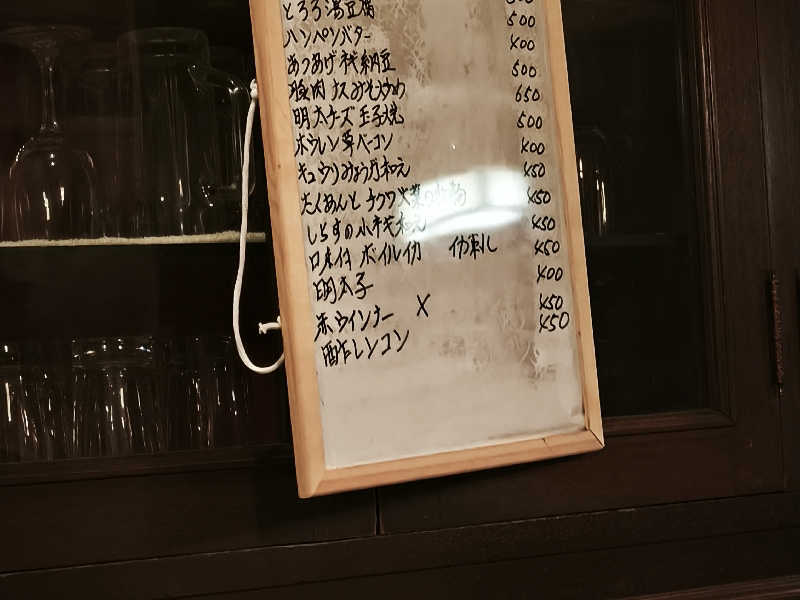 とろろ湯豆腐 500
ハンペンバター 400
あつあげネギ納豆 500
豚肉ナスみそ炒め 650
明太チーズ玉子焼 500
ホウレン草ベーコン 400
キュウリみょうが和え 450
たくあんとチクワ 450
しらすの小ネギ和え 450
ボイルイカ イカ刺し 450
明太子 400
赤ウインナー × 450
酢レンコン 450